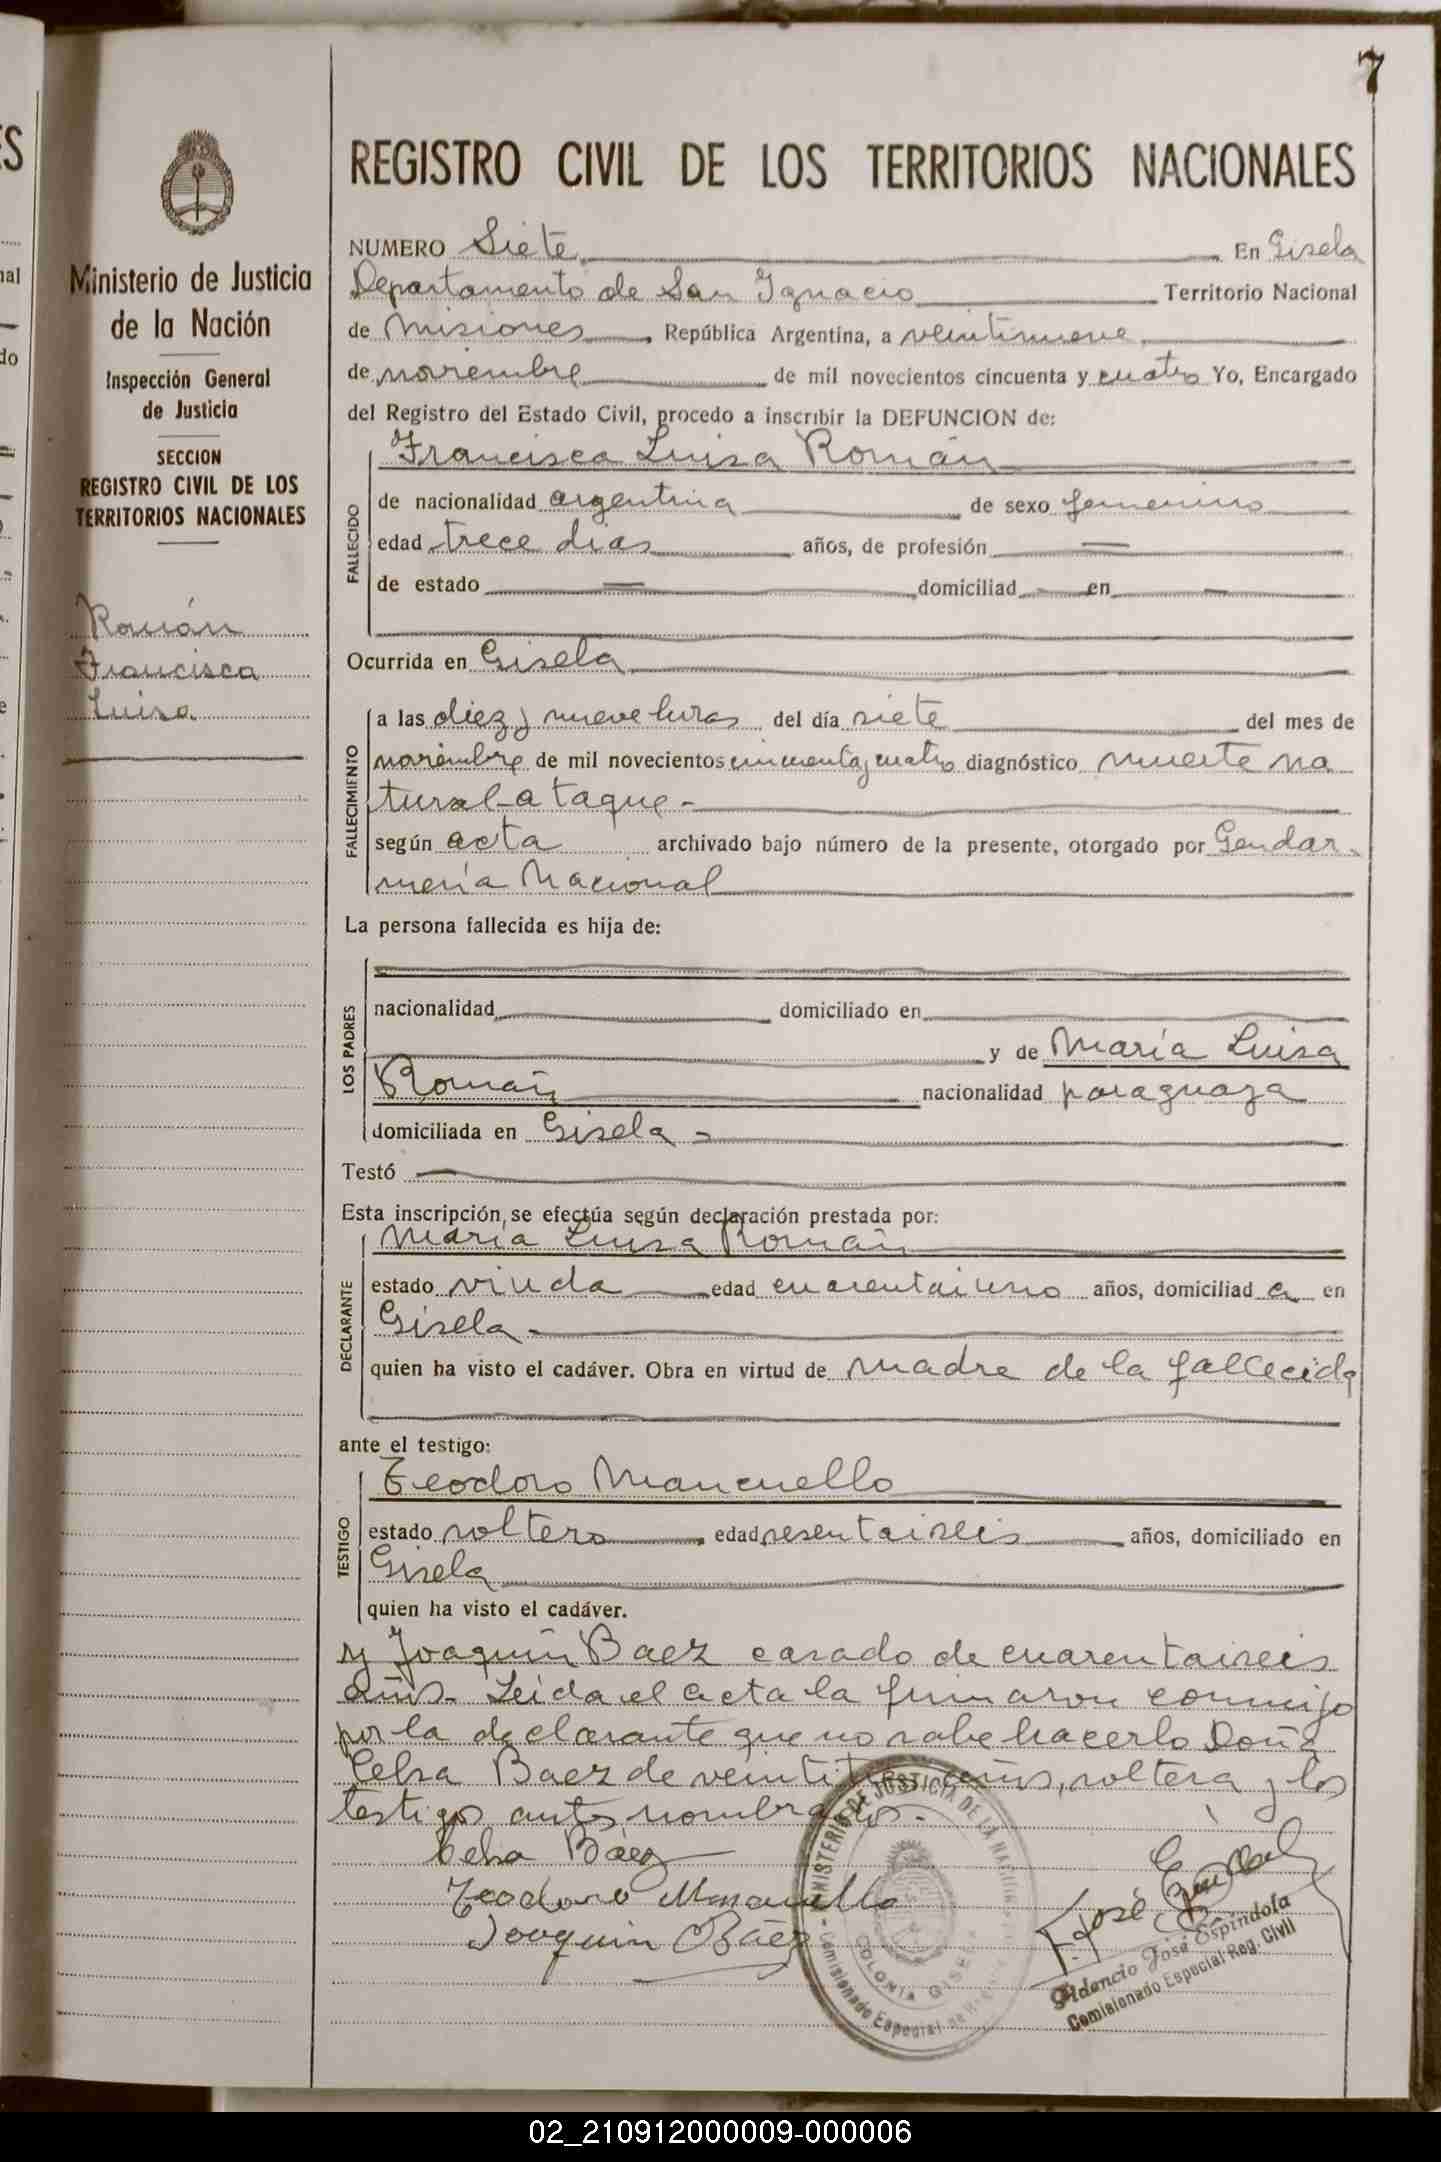 7
REGISTRO CIVIL DE LOS TERRITORIOS NACIONALES
Ministerio de Justicia
de la Nación
Inspección General
de Justicia
SECCION
REGISTRO CIVIL DE LOS
TERRITORIOS NACIONALES
Román
Francisca
Luisa
NUMERO Siete En Gisela
Departamento de San Ignacio Territorio Nacional
de Misiones, República Argentina, a veintinueve
de noviembre de mil novecientos cincuenta y cuatro Yo, Encargado
del Registro del Estado Civil, procedo a inscribir la DEFUNCION de:
Francisca Luisa Román
FALLECIDO
de nacionalidad argentina de sexo femenino
edad trece dias años, de profesión —
de estado — domiciliad — en —
Ocurrida en Gisela
FALLECIMIENTO
a las diez y nueve horas del día siete del mes de
noviembre de mil novecientos cincuenta y cuatro diagnóstico muerte na
tural-ataque-
según acta archivado bajo número de la presente, otorgado por Gendar-
mería Nacional
La persona fallecida es hija de:
LOS PADRES
nacionalidad domiciliado en
y de María Luisa
Román nacionalidad paraguaya
domiciliada en Gisela-
Testó —
Esta inscripción, se efectúa según declaración prestada por:
María Luisa Román
DECLARANTE
estado viuda edad cuarentaiuno años, domiciliad a en
Gisela-
quien ha visto el cadáver. Obra en virtud de madre de la fallecida
ante el testigo:
Teodoro Mancuello
TESTIGO
estado soltero edad sesentaiseis años, domiciliado en
Gisela
quien ha visto el cadáver.
y Joaquín Baez casado de cuarentaiseis
años.- Leida el acta la firmaron conmigo
por la declarante que no sabe hacerlo Doña
Celsa Baez de veintitres años, soltera y los
testigos antes nombrados.-
Celsa Báez
Teodoro Mancuello
Joaquin Báez
F. José Espíndola
Fidencio José Espíndola
Comisionado Especial Reg. Civil
MINISTERIO DE JUSTICIA DE LA NACION
COLONIA GISELA
Comisionado Especial de
02_210912000009-000006